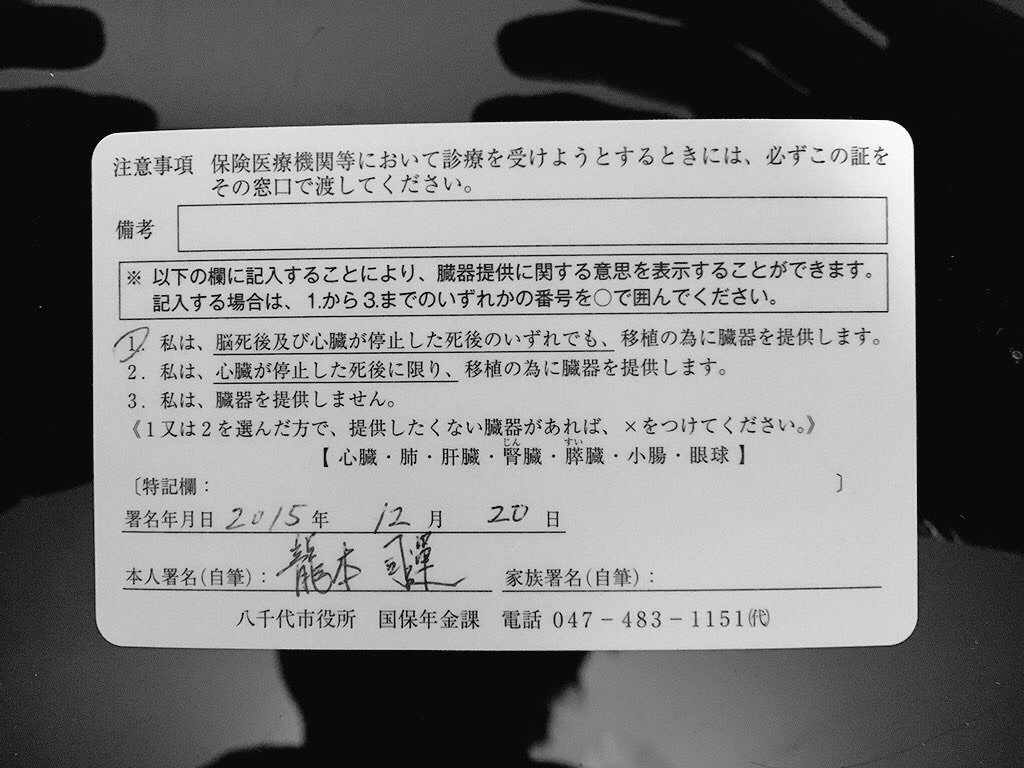 注意事項 保険医療機関等において診療を受けようとするときには、必ずこの証を
その窓口で渡してください。
備考
※ 以下の欄に記入することにより、臓器提供に関する意思を表示することができます。
記入する場合は、1.から3.までのいずれかの番号を○で囲んでください。
1. 私は、脳死後及び心臓が停止した死後のいずれでも、移植の為に臓器を提供します。
2. 私は、心臓が停止した死後に限り、移植の為に臓器を提供します。
3. 私は、臓器を提供しません。
《1又は2を選んだ方で、提供したくない臓器があれば、×をつけてください。》
じん すい
【心臓・肺・肝臓・腎臓・膵臓・小腸・眼球】
〔特記欄: 〕
署名年月日 2015年 12月 20日
本人署名(自筆): 龍本 家族署名(自筆):
八千代市役所 国保年金課 電話 047-483-1151(代)